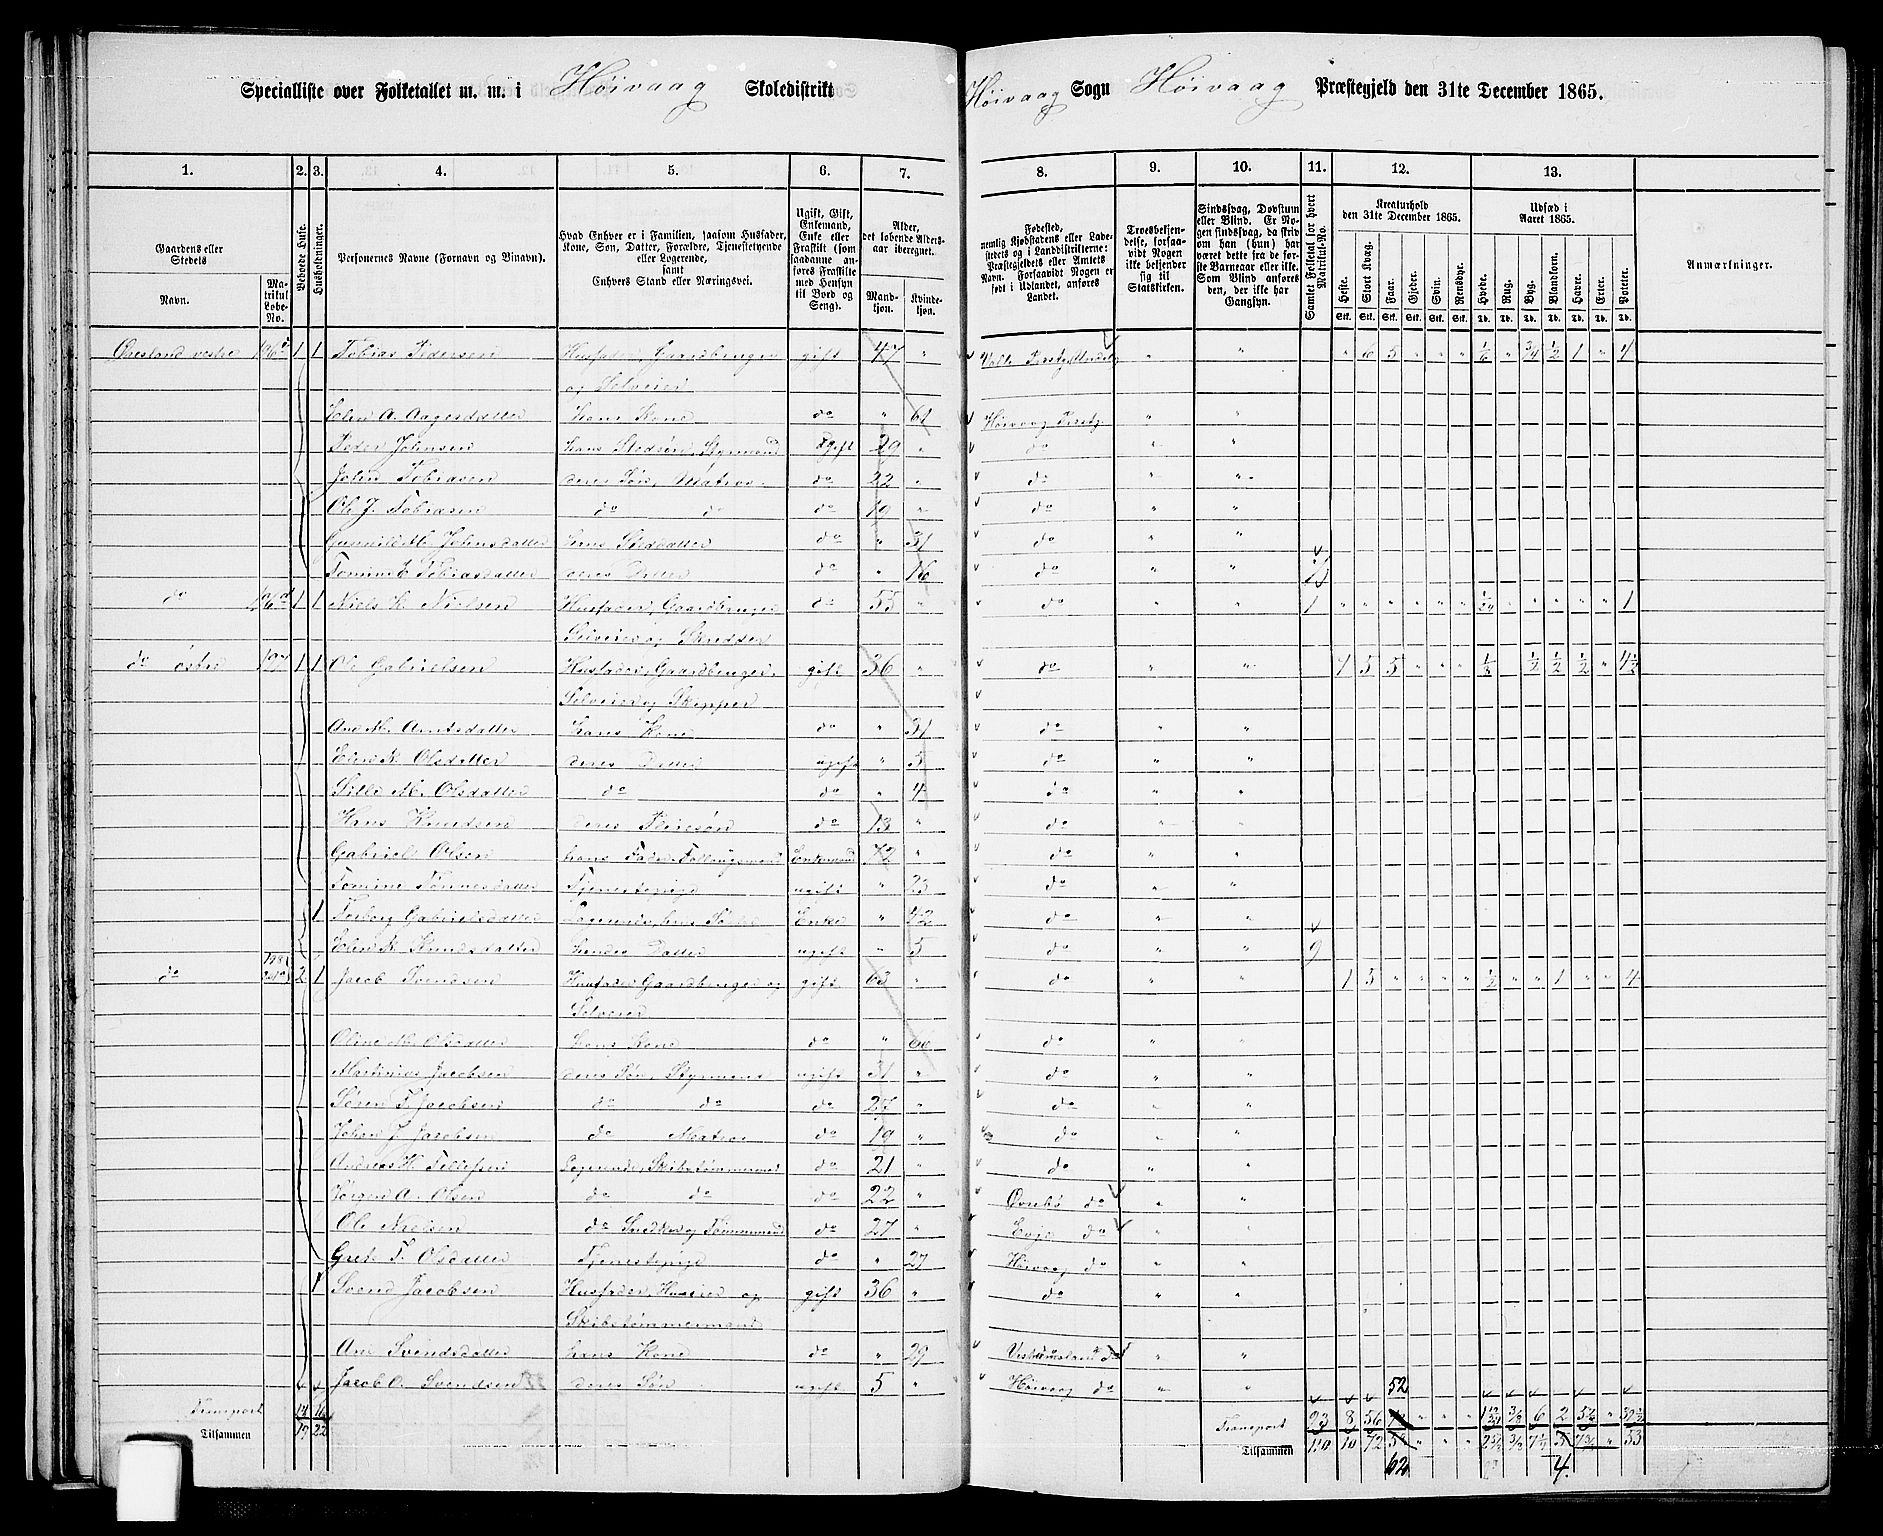 Specialliste over Folketallet m. m. i Høivaag Skoledistrikt Høivaag Sogn Høivaag Præstegjeld den 31te December 1865.
1. 2. 3. 4. 5. 6. 7. 8. 9. 10. 11. 12. 13.
Gaardens eller Stedets
Navn.
Matrikul Løbe-No.
Beboede Huse.
Husholdninger.
Personernes Navne (Fornavn og Binavn).
Hvad Enhver er i Familien, saasom Husfader, Kone, Søn, Datter, Forældre, Tjenestetyende eller Logerende, samt Enhvers Stand eller Næringsvei.
Ugift, Gift, Enkemand, Enke eller Fraskilt (som saadanne anføres Fraskilte med Hensyn til Bord og Seng).
Alder, det løbende Aldersaar iberegnet.
Mandkjøn. Kvindekjøn.
Fødested, nemlig Kjøbstadens eller Ladestedets og i Landdistrikterne: Præstegjeldets eller Amtets Navn. Forsaavidt Nogen er født i Udlandet, anføres Landet.
Troesbekjendelse, forsaavidt Nogen ikke bekjender sig til Statskirken.
Sindssvag, Døvstum eller Blind. Er Nogen sindssvag, da skrives om han (hun) har været dette fra de første Barneaar eller ikke. Som Blind anføres den, der ikke har Gangsyn.
Samlet Folketal for hvert Matrikul-No.
Kreaturhold den 31te December 1865.
Heste. Stort Kvæg. Faar. Gjeder. Svin. Rensdyr.
Udsæd i Aaret 1865.
Hvede. Rug. Byg. Blandkorn. Havre. Erter. Poteter.
Anmærkninger.
1 1 Tobias Pedersen Husfader, Gaardbruger gift 47 " " " " 6 5 " " " 1/6 " 3/4 1/2 1 " 4
og Selveier
Elen A. Aagesdatter hans Kone do " 61 Høivaag Prstg. " "
Peder Johnsen hans Stedsøn, Styrmand ugift 29 " do " "
John Tobiasen deres Søn, Matros do 22 " do " "
Ole J. Tobiasen do do do 19 " do " "
Gunnild M. Johnsdatter hans Steddatter do " 31 do " "
Tomine E. Tobiasdatter deres Datter do " 16 do " "
do 1 1 Niels K. Nielsen Husfader, Gaardbruger do 55 " do " " 1 " " " " " " 1/24 " " " " " 1
Selveier og Skrædder
do østre 1 1 Ole Gabrielsen Husfader, Gaardbruger, gift 36 " do " " 1 5 5 " " " 1/3 " 1/2 1/2 1/2 " 4 1/2
Selveier og Skipper
Ane M. Arntsdatter hans Kone do " 31 do " "
Elen K. Olsdatter deres Datter ugift " 5 do " "
Sille M. Olsdatter do do " 4 do " "
Hans Knudsen deres Pleiesøn do 13 " do " "
Gabriel Olsen hans Fader, Enkemand 72 " do " "
Tomine Tønnesdatter Tjenestepige ugift " 23 do " "
1 Torborg Gabrielsdatter Logerende, Enke " 42 do " "
Elen K. Knudsdatter hendes Datter ugift " 5 do " " 9
do 2 1 Jacob Svendsen Husfader, Gaardbruger og gift 63 " do " " 1 3 " " " " 1/2 " " 1 " " 4
Selveier
Oline M. Olsdatter hans Kone do " 60 do " "
Martinius Jacobsen deres Søn, Styrmand ugift 31 " do " "
Søren T. Jacobsen do do do 27 " do " "
Johan J. Jacobsen do Matros do 19 " do " "
Andreas H. Tellefsen Logerende, Skibstømmermand do 21 " do " "
Jørgen A. Olsen do do do 22 " do " "
Ole Nielsen do Snedker og Tømmermand do 27 " Evje do " "
Grete T. Olsdatter Tjenestepige do " 27 Høivaag do " "
1 Svend Jacobsen Husfader, Huseier og gift 36 " do " "
Skibstømmermand
Ane Svendsdatter hans Kone do " 29 do " "
Jacob O. Svendsen deres Søn ugift 5 " Høivaag do " " 52
Transport 14 16 Transport 93 8 56 " " " 3/8 6 2 "
Tilsammen 19 22 Tilsammen 110 10 72 " " " " 53
62 4.